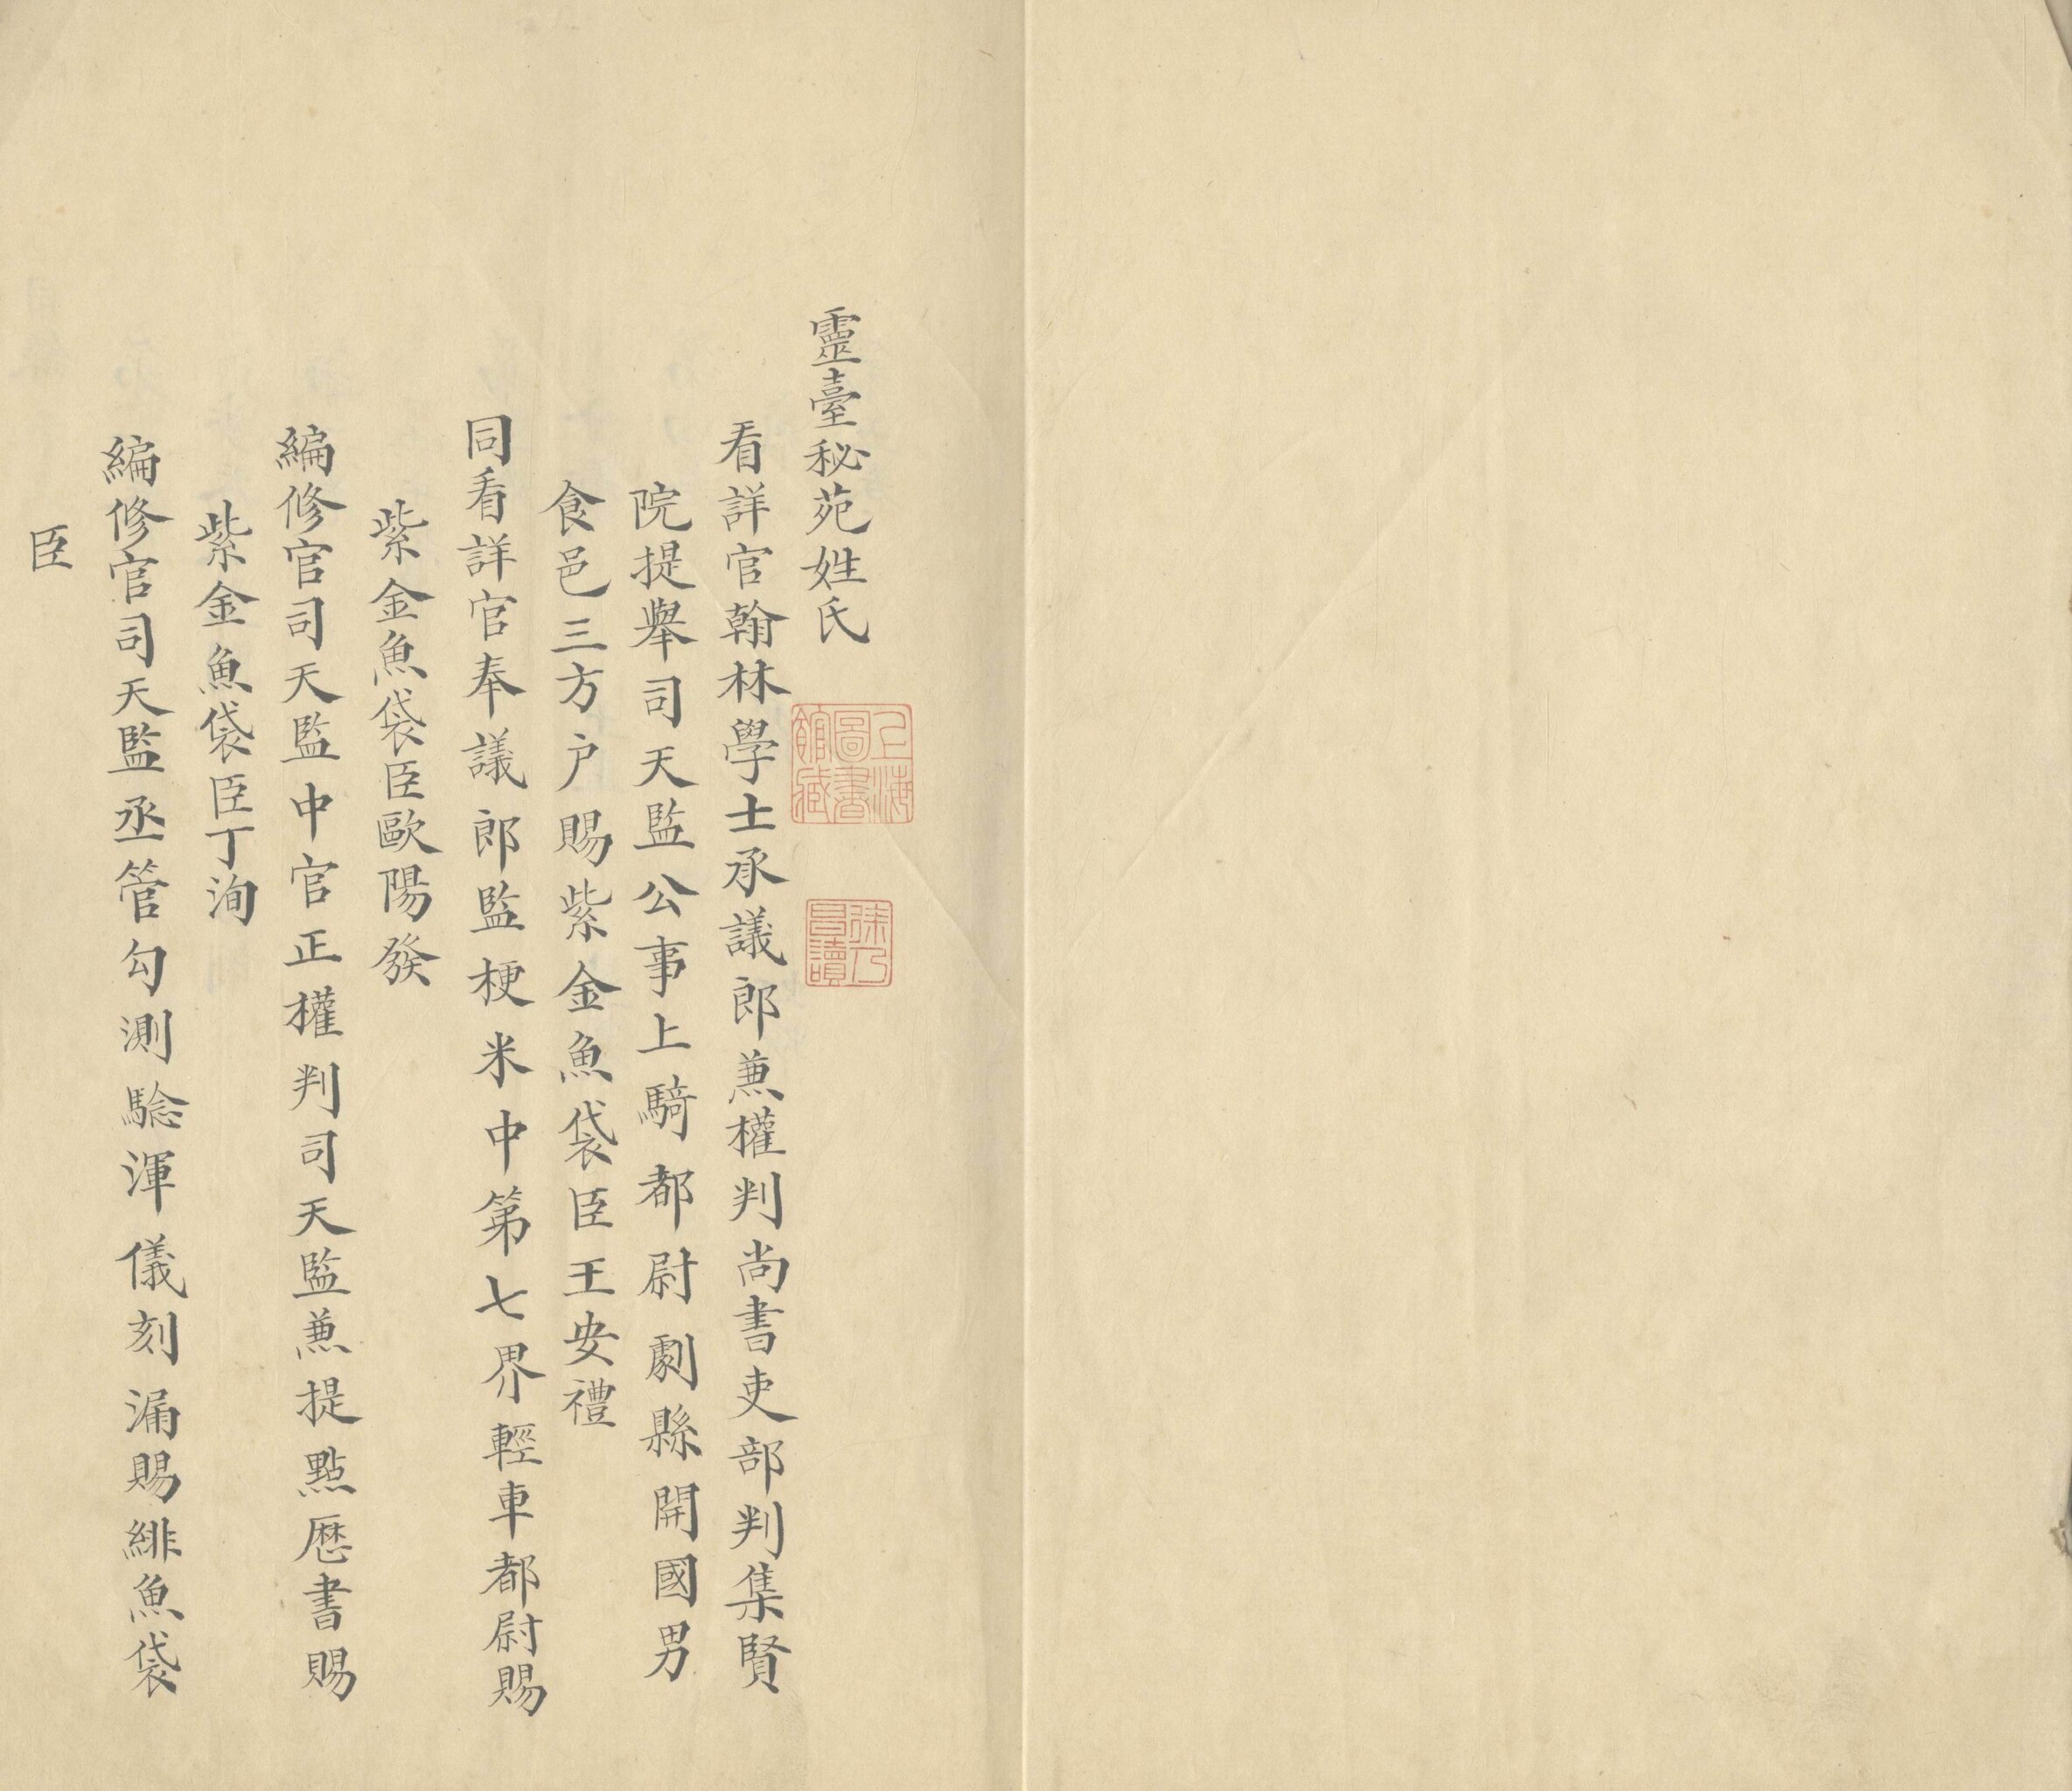 靈臺秘苑姓氏
上海圖書館藏
徐乃昌讀
看詳官翰林學士承議郎兼權判尚書吏部判集賢
院提舉司天監公事上騎都尉劇縣開國男
食邑三方户賜紫金魚袋臣王安禮
同看詳官奉議郎監梗米中第七界輕車都尉賜
紫金魚袋臣歐陽發
編修官司天監中官正權判司天監兼提點厯書賜
紫金魚袋臣丁洵
編修官司天監丞管勾測騐渾儀刻漏賜緋魚袋
臣